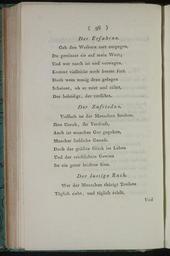 ( 98 )
Der Erfahrne.
Geh den Weibern zart entgegen,
Du gewinnst sie auf mein Wort;
Und wer rasch ist und verwegen,
Kommt vielleicht noch besser fort.
Doch wem wenig dran gelegen
Scheinet, ob er reizt und rührt,
Der beleidigt, der verführt.
Der Zufriedne.
Vielfach ist der Menschen Streben,
Ihre Unruh, ihr Verdruß;
Auch ist manches Gut gegeben,
Mancher liebliche Genuß.
Doch das größte Glück im Leben
Und der reichlichste Gewinn
Ist ein guter leichter Sinn.
Der lustige Rath.
Wer der Menschen thöricht Treiben
Täglich sieht, und täglich schilt,
Und